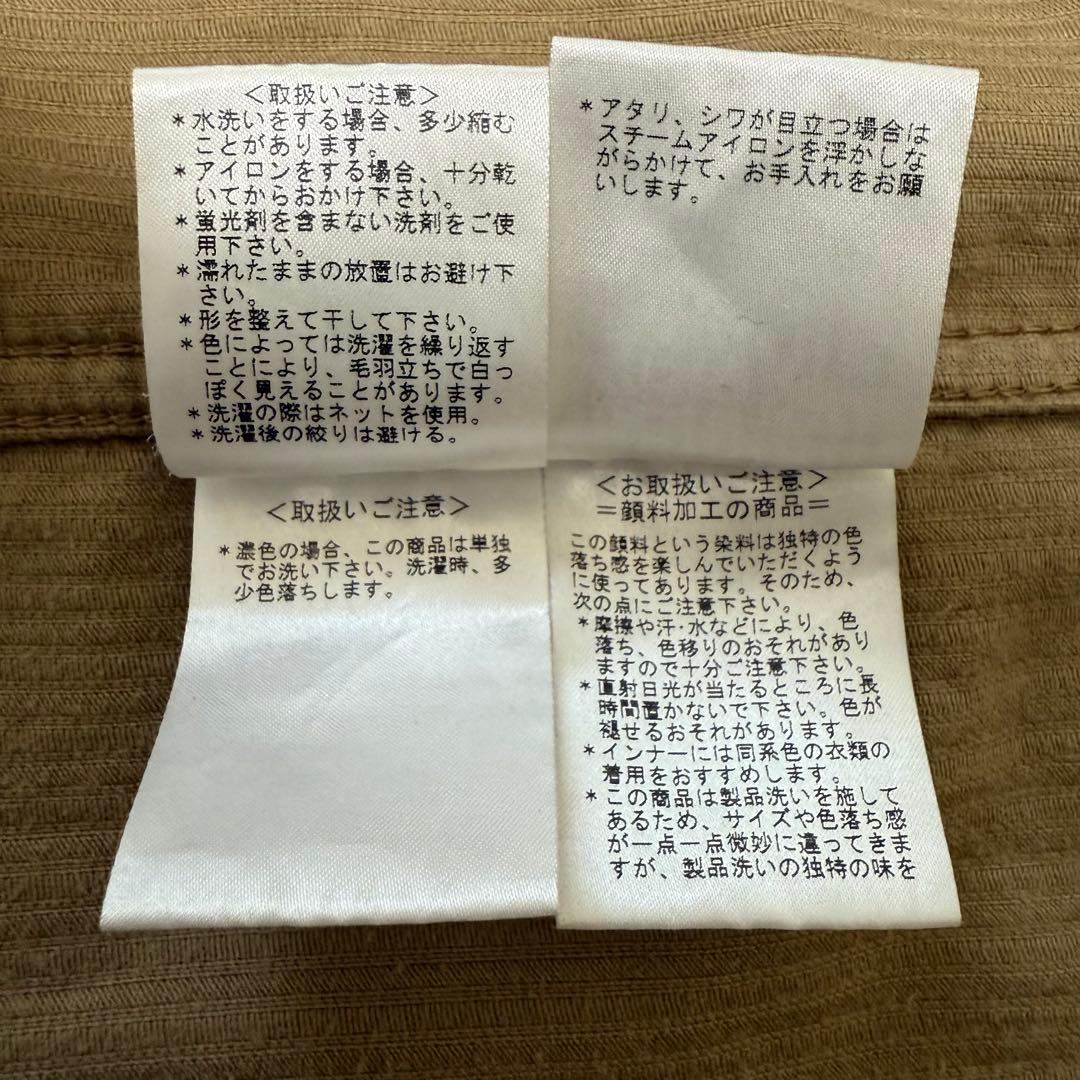 ＜取扱いご注意＞
＊水洗いをする場合、多少縮む
ことがあります。
＊アイロンをする場合、十分乾
いてからおかけ下さい。
＊蛍光剤を含まない洗剤をご使
用下さい。
＊濡れたままの放置はお避け下
さい。
＊形を整えて干して下さい。
＊色によっては洗濯を繰り返す
ことにより、毛羽立ちで白っ
ぽく見えることがあります。
＊洗濯の際はネットを使用。
＊洗濯後の絞りは避ける。
＊アタリ、シワが目立つ場合は
スチームアイロンを浮かしな
がらかけて、お手入れをお願
いします。
＜取扱いご注意＞
＊濃色の場合、この商品は単独
でお洗い下さい。洗濯時、多
少色落ちします。
＜お取扱いご注意＞
＝顔料加工の商品＝
この顔料という染料は独特の色
落ち感を楽しんでいただくよう
に使ってあります。そのため、
次の点にご注意下さい。
＊摩擦や汗・水などにより、色
落ち、色移りのおそれがあり
ますので十分ご注意下さい。
＊直射日光が当たるところに長
時間置かないで下さい。色が
褪せるおそれがあります。
＊インナーには同系色の衣類の
着用をおすすめします。
＊この商品は製品洗いを施して
あるため、サイズや色落ち感
が一点一点微妙に違ってきま
すが、製品洗いの独特の味を